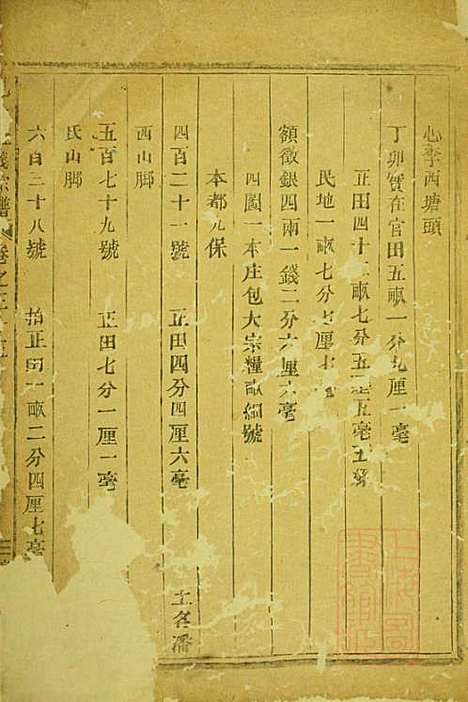 心李西塘頭
丁卯實在官田五畝一分九厘一毫
正田四十二畝七分五毫五
民地一畝七分七厘七
額徵銀四兩一錢二分六厘六毫
四圖一本庄包大宗糧畝細號
本都九保
四百二十一號 正田四分四厘六毫 土名潘
西山脚
五百七十九號 正田七分一厘一毫
氏山脚
六百三十八號 拍正田一畝二分四厘七毫
宗譜 卷之